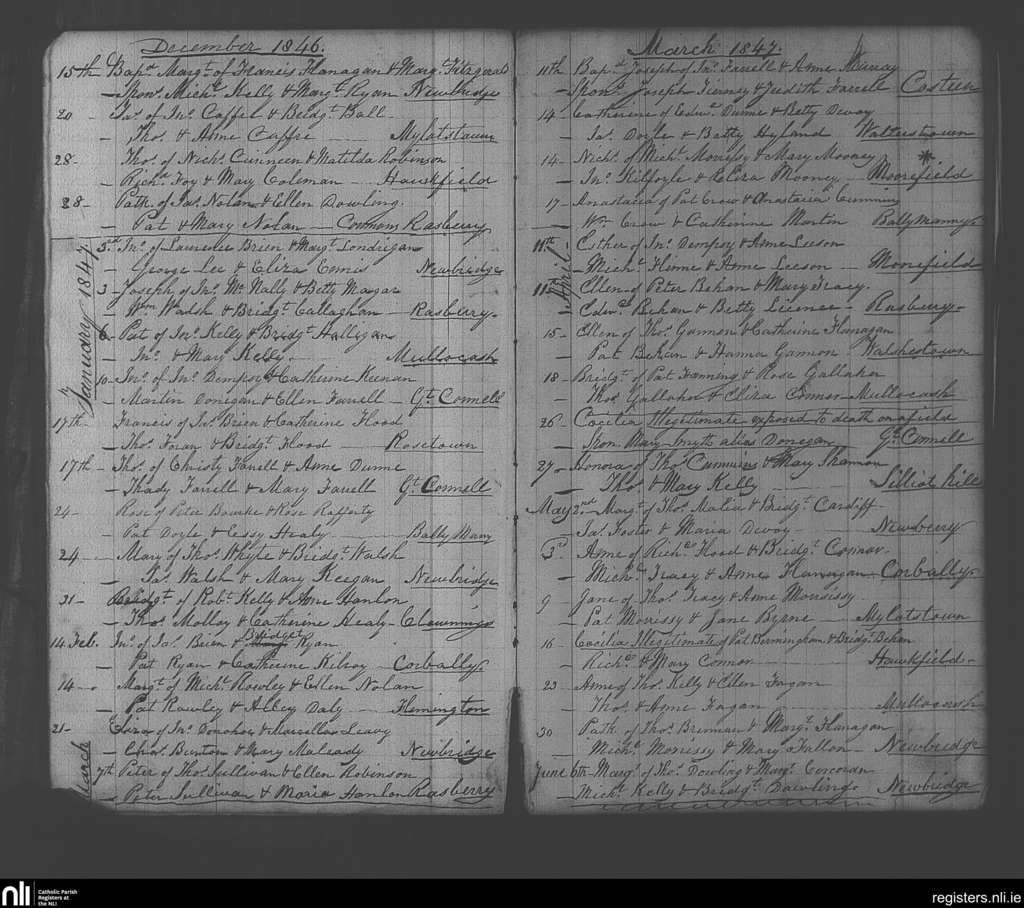 December 1846.
15th Bapt. Margt. of Francis Flanagan & Margt. Fitzgerald
— Spon. Michl. Kelly & Margt. Ryan Newbridge
20 — Ja. of Jno. Caffel & Bridgt. Ball
Thos. & Anne Caffre — Mylatstown
28 — Thos. of Nichs. Cunneen & Matilda Robinson
— Richd. Foy & Mary Coleman — Hawkfield
28 — Patk. of Jas. Nolan & Ellen Dowling.
— Pat & Mary Nolan — Common Rasberry
January 1847.
5th Jno. of Laurence Brien & Margt. Londrigan
— George Lee & Eliza Ennis Newbridge
3 — Joseph of Jno. McNally & Betty Magar
— Wm. Walsh & Bridgt. Callaghan — Rasberry.
6 — Pat of Jno. Kelly & Bridgt. Halligan
— Jno. & Mary Kelly. — Mullocash
10 — Jno. of Jno. Dempsey & Catherine Keenan
— Martin Donegan & Ellen Farrell — Gt. Connell
17th — Francis of Jno. Brien & Catherine Flood
— Thos. Foran & Bridgt. Flood — Rosetown
17th — Thos. of Christy Farrell & Anne Dunne
— Thady Farrell & Mary Farrell Gt. Connell
24 — Rose of Peter Bourke & Rose Rafferty
Pat Doyle & Essy Healy — Bally Many
24 — Mary of Thos. Whyte & Bridgt. Walsh
— Jas. Walsh & Mary Keegan Newbridge
31 — Bridgt. of Robt. Kelly & Anne Hanlon
— Thos. Molloy & Catherine Healy — Clownings
14 Feb. Jno. of Jas. Brien & Bridget Ryan
— Pat Ryan & Catherine Kilroy — Corbally.
14 — Margt. of Michl. Rowley & Ellen Nolan
— Pat Rowley & Abbey Daly — Flemington
21 — Eliza of Jno. Donohoe & Marcella Leavy
— Chas. Burton & Mary Malready Newbridge
March
7th Peter of Thos. Sullivan & Ellen Robinson
— Peter Sullivan & Maria Hanlon Rasberry
March 1847.
11th Bapt. Joseph of Jno. Farrell & Anne Murray
— Spon. Joseph & Judith Farrell
14 — Catherine of Edwd. Dunne & Betty Devoy
— Jas. Doyle & Batty Hyland Walterstown
14 — Nichs. of Michl. Morressy & Mary Mooney *
— Jno. Kilfoyle & Eliza Mooney — Moorefield
17 — Anastasia of Pat Crow & Anastasia Cumming
— Wm. Crow & Catherine Morton Ballymanny.
April
11th Esther of Jno. Dempsy & Anne Leeson
— Michl. Hinne & Anne Leeson — Moorefield
11th Ellen of Peter Behan & Mary Tracy.
— Edwd. Behan & Betty — Rasberry —
15 — Ellen of Thos. Gannon & Catherine Flanagan
— Pat Behan & Hanna Gannon — Walshestown
18 — Bridgt. of Pat Fanning & Rose Gallaher
— Thos. Gallaher & Eliza Connor — Mullocash
26 — Cecilia Illegitimate exposed to death on a field
— Spon. Mary Smyth alias Donegan Gt. Connell
27 — Honora of Thos. Cummins & Mary Shannon
— Thos. & Mary Kelly — Silliot Hill
May 2nd — Margt. of Thos. Malia & Bridgt. Cardiff.
— Jas. Foster & Maria Devoy — Newberry
3d — Anne of Richd. Flood & Bridgt. Connor.
— Michl. Tracy & Anne Flanagan — Corbally.
9 — Jane of Thos. Tracy & Anne Morrissy
— Pat Morrissy & Jane Byrne — Mylatstown
16 — Cecilia Illegitimate of Pat Bermingham & Bridgt. Behan
— Richd. & Mary Connor — Hawkfield.
23 — Anne of Thos. Kelly & Ellen Fagan
— Thos. & Anne Fagan — Mullocash
30 — Patk. of Thos. Brennan & Margt. Flanagan
— Michl. Morrissy & Mary Fallon — Newbridge
June 6th — Margt. of Thos. Dowling & Margt. Corcoran
— Michl. Kelly & Bridgt. Dowling. Newbridge
nli
Catholic Parish
Registers at
the NLI
registers.nli.ie